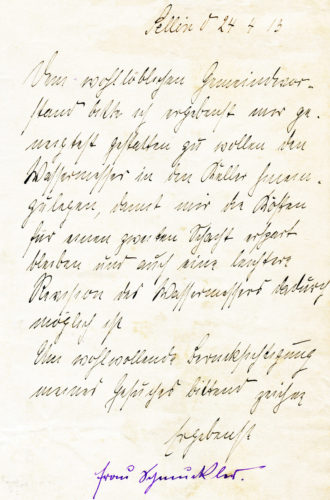 Zellin d 24 4 13
Den wohllöblichen Gemeindevor-
stand bitte ich ergebenst mir ge-
neigtest gestatten zu wollen den
Wassermesser in den Keller hinein-
zulegen, damit mir die Kosten
für einen zweiten Schacht erspart
bleiben und auch eine leichtere
Revision des Wassermessers dadurch
möglich ist
Um wohlwollende Berücksichtigung
meines Gesuches bittend zeichne
Ergebenst
Frau Schmuckler.